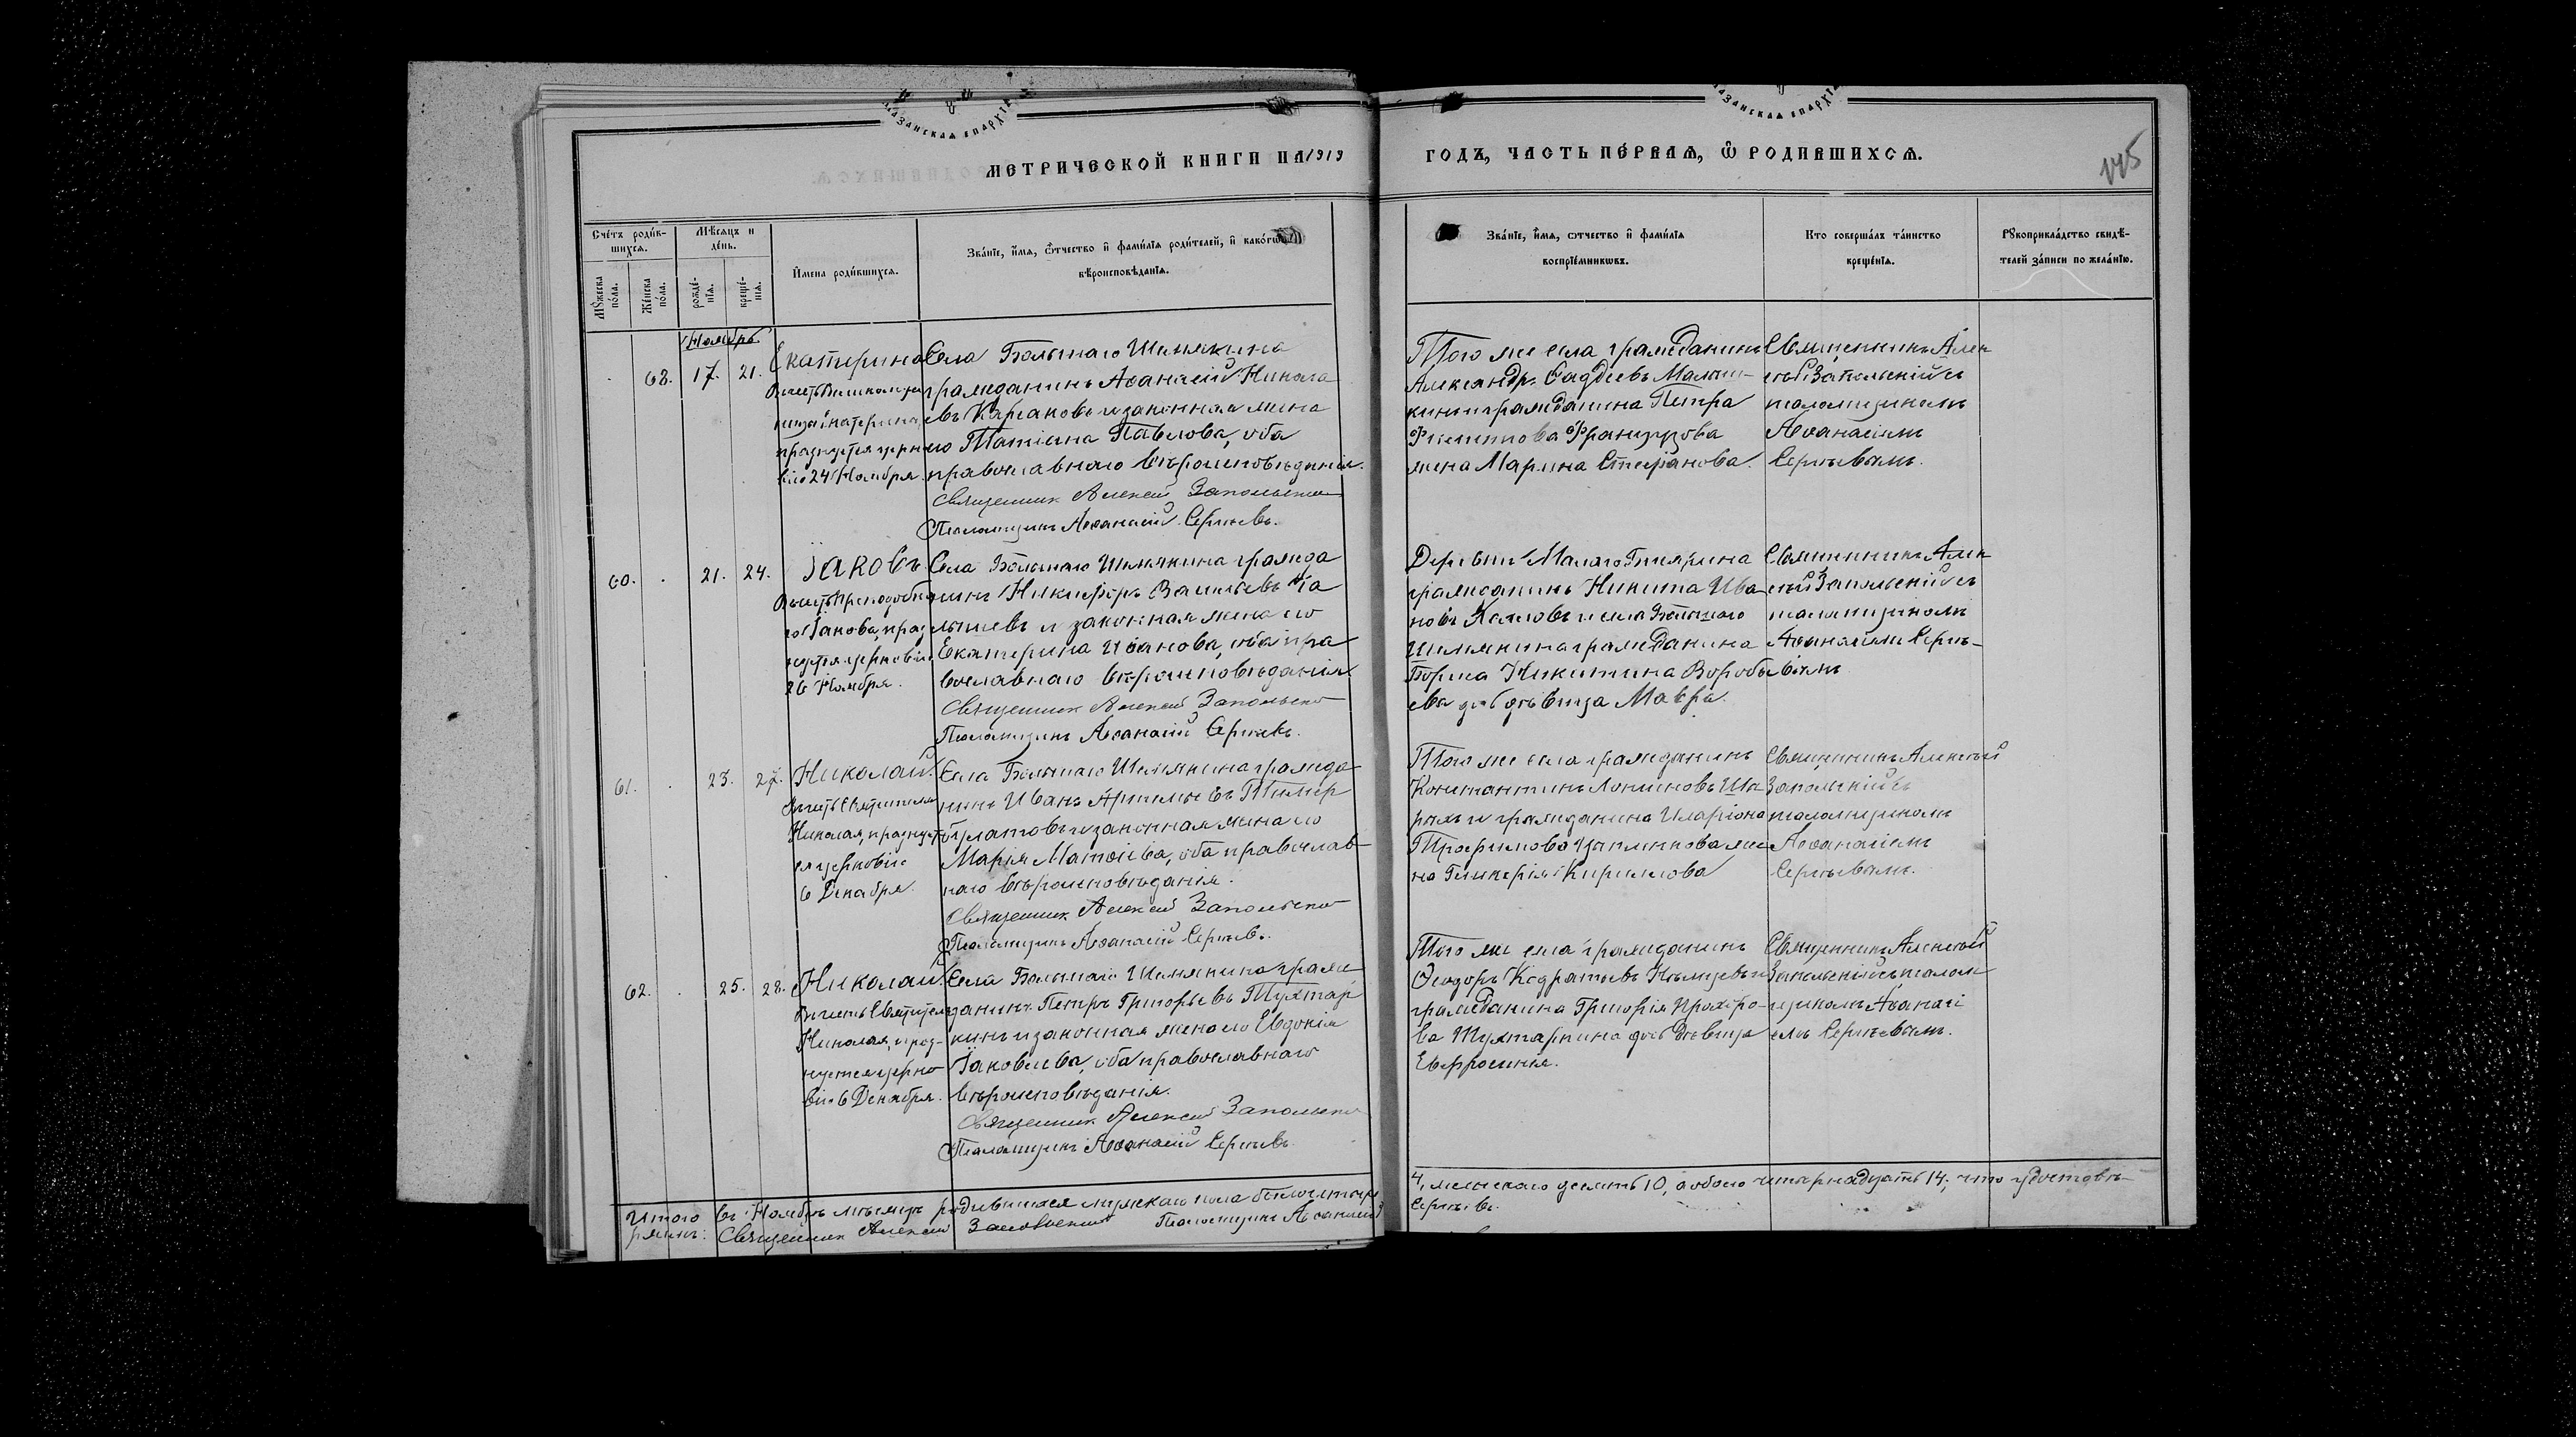 КАЗАНСКАЯ ЕПАРХІЯ
КАЗАНСКАЯ ЕПАРХІЯ
МЕТРИЧЕСКОЙ КНИГИ НА 1919
ГОДЪ, ЧАСТЬ ПЕ́РВАЯ, Ѿ РОДИВШИХСЯ.
145
Сче́тъ роди́в-
шихся.
Мѣ́сяцъ и
де́нь.
Мꙋ́жеска
по́ла.
Же́нска
по́ла.
рожде́-
нїѧ.
креще́-
нїѧ.
И҆мена роди́вшихсѧ.
Зва́нїе, и҆́мѧ, ѻ҆́тчество и҆ фами́лїѧ роди́телей, и҆ како́гѡ
вѣроисповѣ́данїѧ.
Зва́нїе, и҆́мѧ, ѻтчество и҆ фами́лїѧ
воспрїе́мникѡвъ.
Кто соверша́лъ та́инство
креще́нїѧ.
Рꙋкоприкла́дство свидѣ́-
телей за́писи по жела́нїю.
Ноябрь
68. 17. 21.
Екатерина
Въ честь Великомуче
ницы Екатерины,
празнуется церко
вію 24 Ноября.
Села Большаго Шемякина
гражданинъ Аѳанасій Никола
евъ Карсаковъ и законная жена
его Татіана Павлова, оба
православнаго вѣроисповѣданія.
Священник Алексей Запольский
Псаломщикъ Аѳанасій Сергѣевъ.
Того же села гражданинъ
Александръ Ѳаддеевъ Малыш-
кинъ и гражданина Петра
Филиппова Французова
жена Марина Стефанова.
Священникъ Алек
сѣй Запольскій съ
псаломщикомъ
Аѳанасіемъ
Сергѣевымъ.
60. 21. 24.
Іаковъ
Въ честь Преподобна
го Іакова, праз
нуется церковію
26 Ноября.
Села Большаго Шемякина гражда
нинъ Никифоръ Васильевъ Ча
лышевъ и законная жена его
Екатерина Иванова, оба пра
вославнаго вѣроисповѣданія
Священник Алексей Запольский
Псаломщикъ Аѳанасій Сергѣевъ.
Деревни Малаго
гражданинъ Никита Ива
новъ Козловъ и села Большого
Шемякина гражданина
Бориса Никитина Воробь
ева дочь дѣвица Мавра.
Священникъ Алек
сѣй Запольскій съ
псаломщикомъ
Аѳанасіемъ Сергѣ-
евымъ
61. 23. 27.
Николай.
Въ честь Святителя
Николая, празнует
ся церковію
6 Декабря.
Села Большаго Шемякина гражда
нинъ Иванъ Артемьевъ Тимер
булатовъ и законная жена его
Марія Матѳіева, оба православ
наго вѣроисповѣданія.
Священник Алексей Запольский
Псаломщикъ Аѳанасій Сергѣевъ.
Того же села гражданинъ
Константинъ Логиновъ
и гражданина Иларіона
Трофимова жe
на Гликерія Кириллова
Священникъ Алексѣй
Запольскій съ
псаломщикомъ
Аѳанасіемъ
Сергѣевымъ.
62. 25. 28.
Николай.
Въ честь Святителя
Николая, праз-
нуется церко
вію 6 Декабря.
Села Большаго Шемякина граж
данинъ Петръ Григорьевъ Тухтар
кинъ и законная жена его Евдокія
Іаковлева, оба православнаго
вѣроисповѣданія.
Священник Алексей Запольский
Псаломщикъ Аѳанасій Сергѣевъ.
Того же села гражданинъ
Ѳеодоръ Кодратьевъ Нѣмцевъ и
гражданина Григорія Прохоро-
ва Тухтаркина дочь дѣвица
Евфросинія.
Священникъ Алексѣй
Запольскій съ псалом
щикомъ Аѳанасі
емъ Сергѣевымъ.
Итого въ Ноябрѣ мѣсяцѣ родившихся мужскаго пола было четыре
4, женскаго десять 10, а обоего четырнадцать 14; что удостовѣ-
ряемъ: Священник Алексей Запольский Псаломщикъ Аѳанасій
Сергѣевъ.